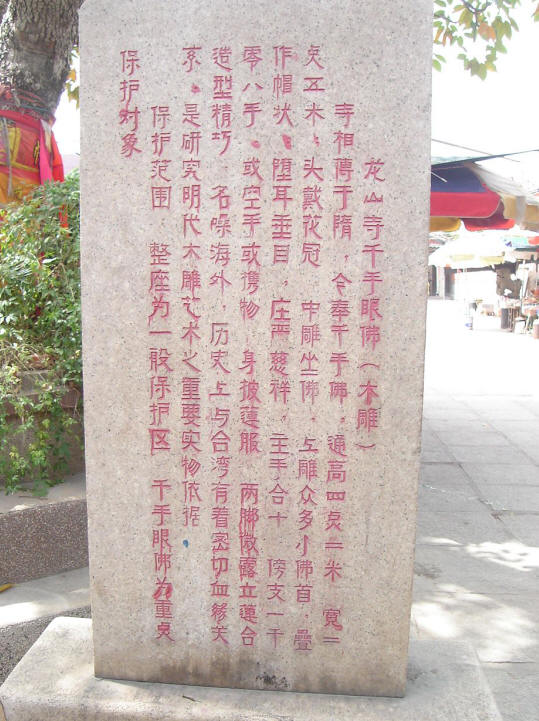 龙山寺千手眼佛(木雕)
寺相傳于隋，今奉千手佛，通高四奌二米 宽二
奌五米，头戴花冠 中雕坐佛，上雕众多小佛首，疊
作帽状，墮耳垂目，庄严慈祥，主手合十 傍支一千
零八手，或空手或携物 身披蓮服 两脚微露立蓮台
造型精巧 名噪海外，历史上与台湾有着密切血缘关
系，是研究明代木雕艺术之重要实物依据
保护范围 整座为一般保护区 千手眼佛为重奌
保护对象